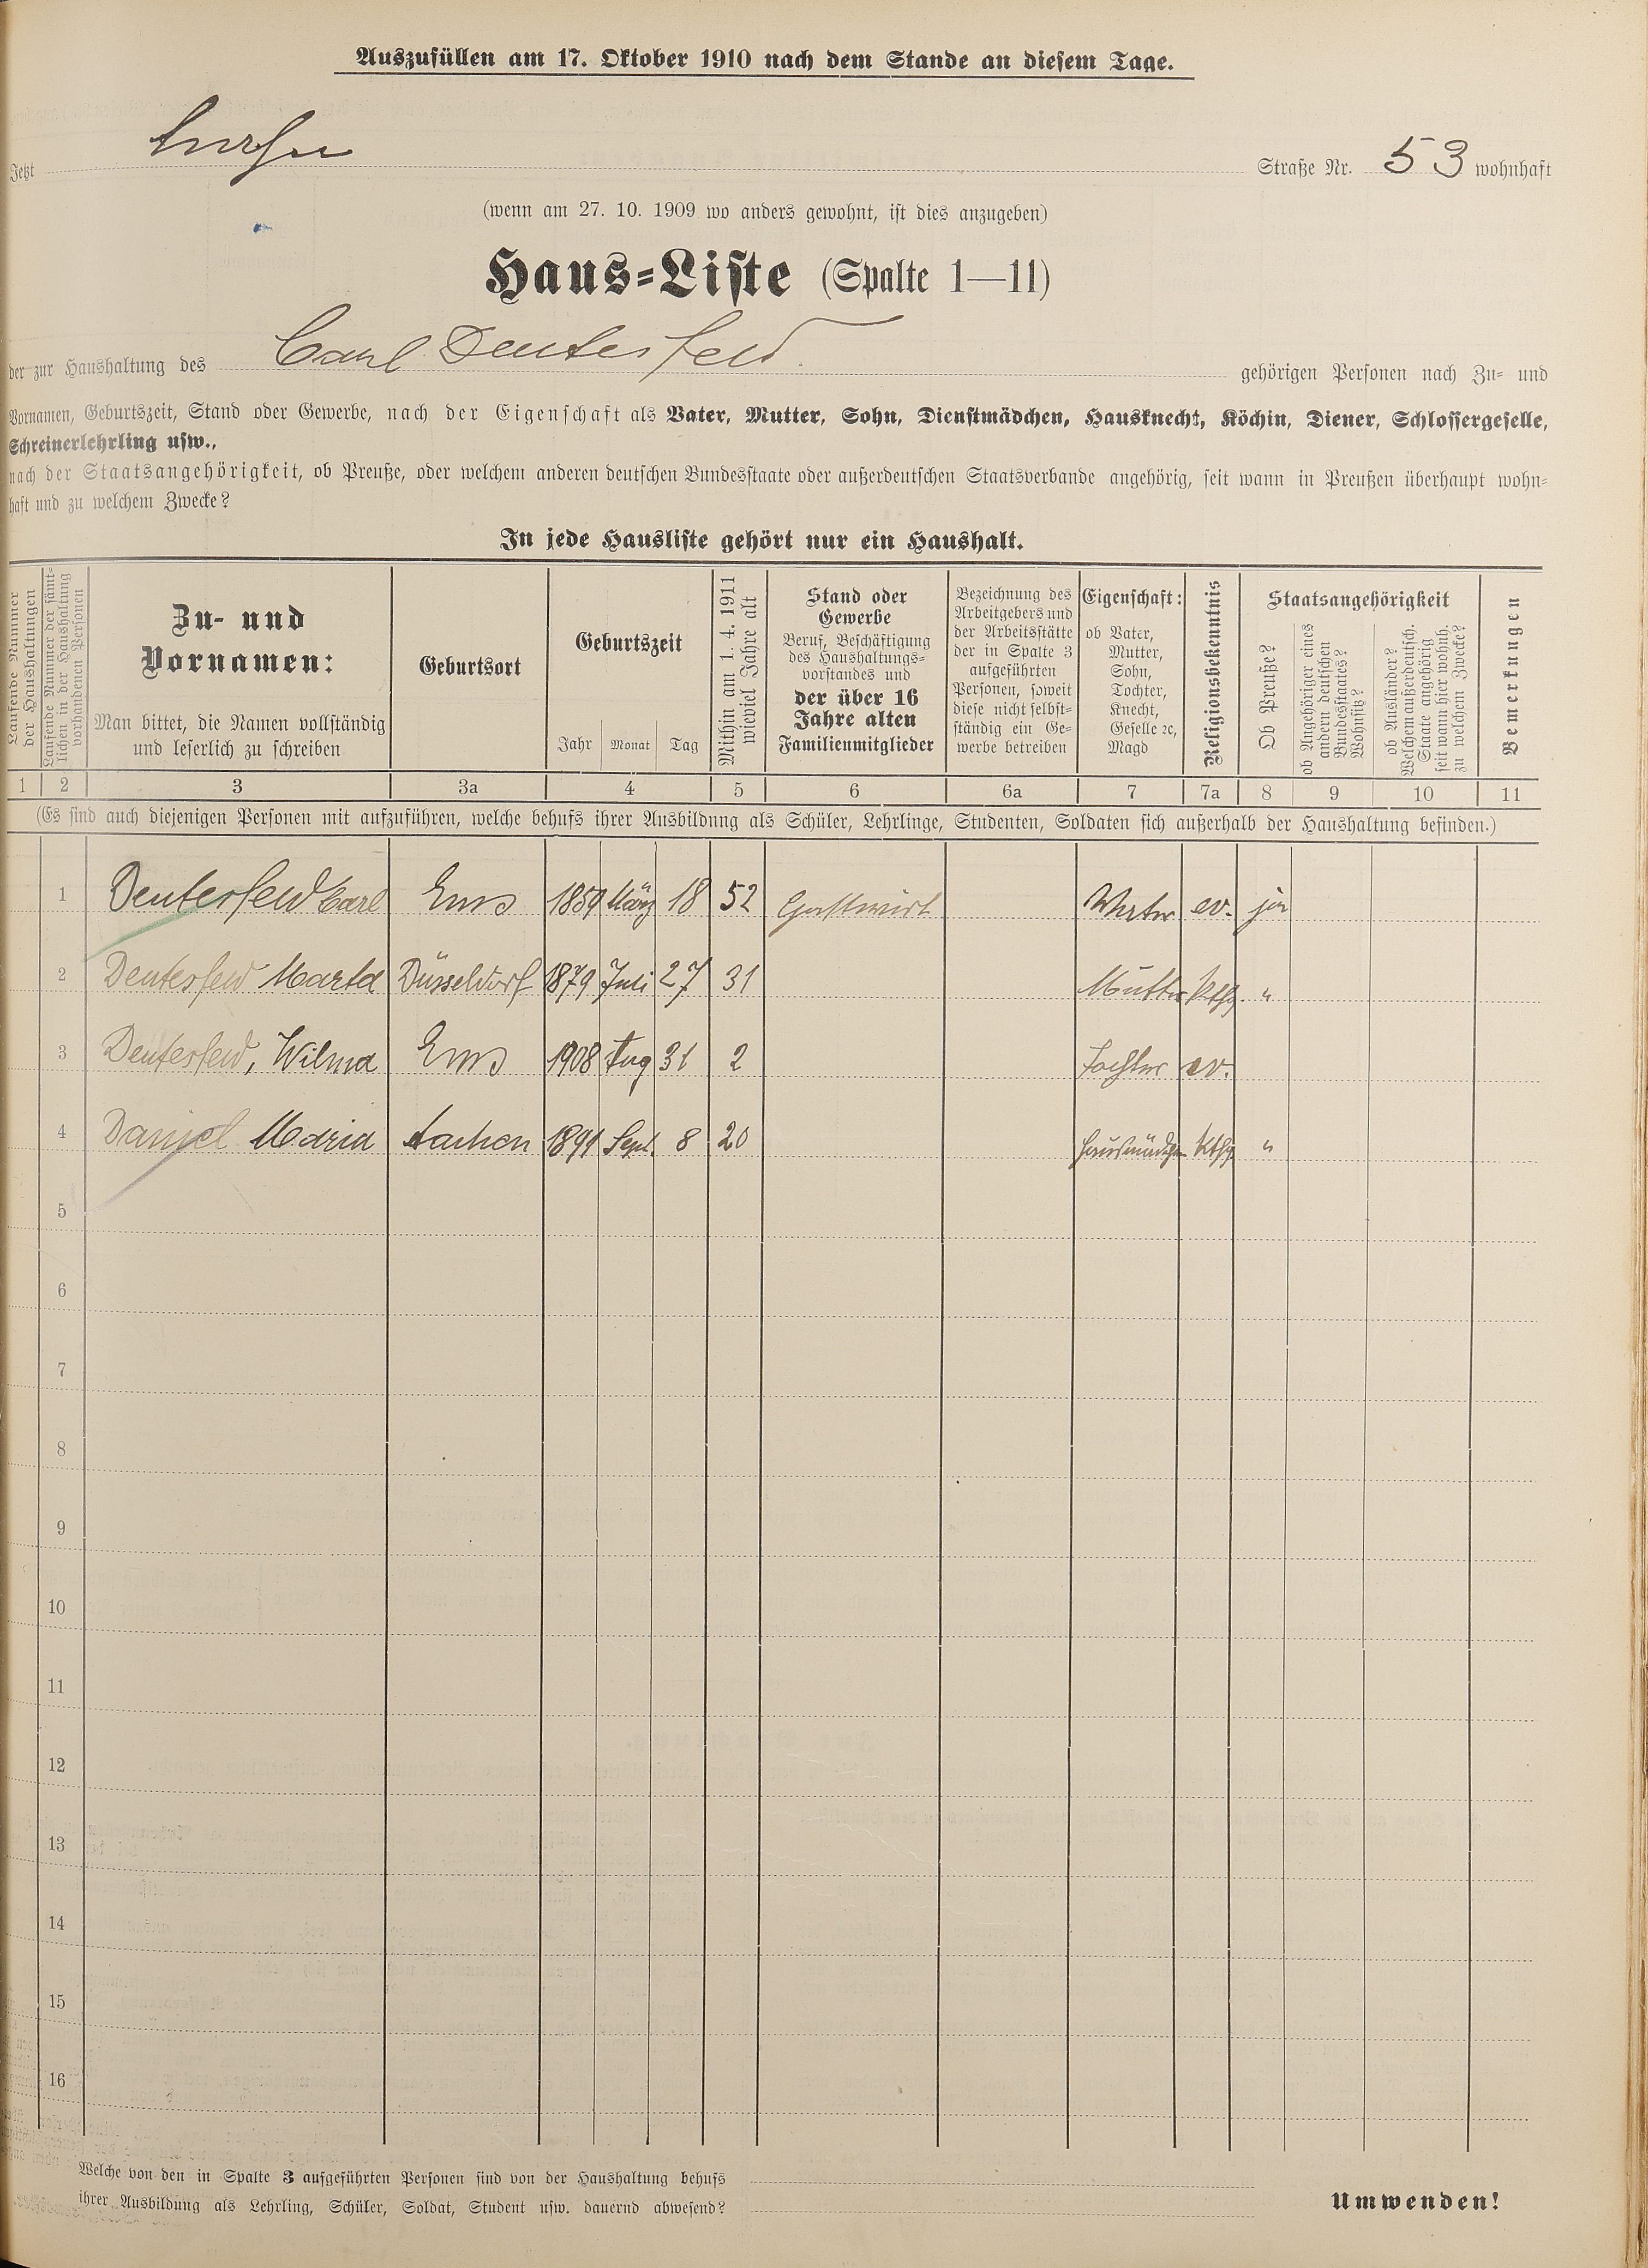 Auszufüllen am 17. Oktober 1910 nach dem Stande an diesem Tage.
Jetzt Straße Nr. 53 wohnhaft
(wenn am 27. 10. 1909 wo anders gewohnt, ist dies anzugeben)
Haus-Liste (Spalte 1—11)
der zur Haushaltung des Carl Deutesfeld gehörigen Personen nach Zu- und
Vornamen, Geburtszeit, Stand oder Gewerbe, nach der Eigenschaft als Vater, Mutter, Sohn, Dienstmädchen, Hausknecht, Köchin, Diener, Schlossergeselle,
Schreinerlehrling usw.,
nach der Staatsangehörigkeit, ob Preuße, oder welchem anderen deutschen Bundesstaate oder außerdeutschen Staatsverbande angehörig, seit wann in Preußen überhaupt wohn-
haft und zu welchem Zwecke?
In jede Hausliste gehört nur ein Haushalt.
Laufende Nummer
der Haushaltungen
Laufende Nummer der sämt-
lichen in der Haushaltung
vorhandenen Personen
Zu- und
Vornamen:
Man bittet, die Namen vollständig
und leserlich zu schreiben
Geburtsort
Geburtszeit
Jahr Monat Tag
Mithin am 1. 4. 1911
wieviel Jahre alt
Stand oder
Gewerbe
Beruf, Beschäftigung
des Haushaltungs-
vorstandes und
der über 16
Jahre alten
Familienmitglieder
Bezeichnung des
Arbeitgebers und
der Arbeitsstätte
der in Spalte 3
aufgeführten
Personen, soweit
diese nicht selbst-
ständig ein Ge-
werbe betreiben
Eigenschaft:
ob Vater,
Mutter,
Sohn,
Tochter,
Knecht,
Geselle ꝛc,
Magd
Religionsbekenntnis
Staatsangehörigkeit
Ob Preuße?
ob Angehöriger eines
andern deutschen
Bundesstaates?
Wohnsitz?
ob Ausländer?
Welchem außerdeutsch.
Staate angehörig
seit wann hier wohnh.
zu welchem Zwecke?
Bemerkungen
1 2 3 3a 4 5 6 6a 7 7a 8 9 10 11
(Es sind auch diejenigen Personen mit aufzuführen, welche behufs ihrer Ausbildung als Schüler, Lehrlinge, Studenten, Soldaten sich außerhalb der Haushaltung befinden.)
1 Deutesfeld Carl Ems 1859 März 18 52 Gastwirt Vater ev. ja
2 Deutesfeld Marta Düsseldorf 1879 Juli 27 31 Mutter kthg. "
3 Deutesfeld, Wilma Ems 1908 Aug 31 2 Tochter ev.
4 Daniel Maria Aachen 1891 Sept. 8 20 Hausmädchen kthg. "
5
6
7
8
9
10
11
12
13
14
15
16
Welche von den in Spalte 3 aufgeführten Personen sind von der Haushaltung behufs
ihrer Ausbildung als Lehrling, Schüler, Soldat, Student usw. dauernd abwesend?
Umwenden!